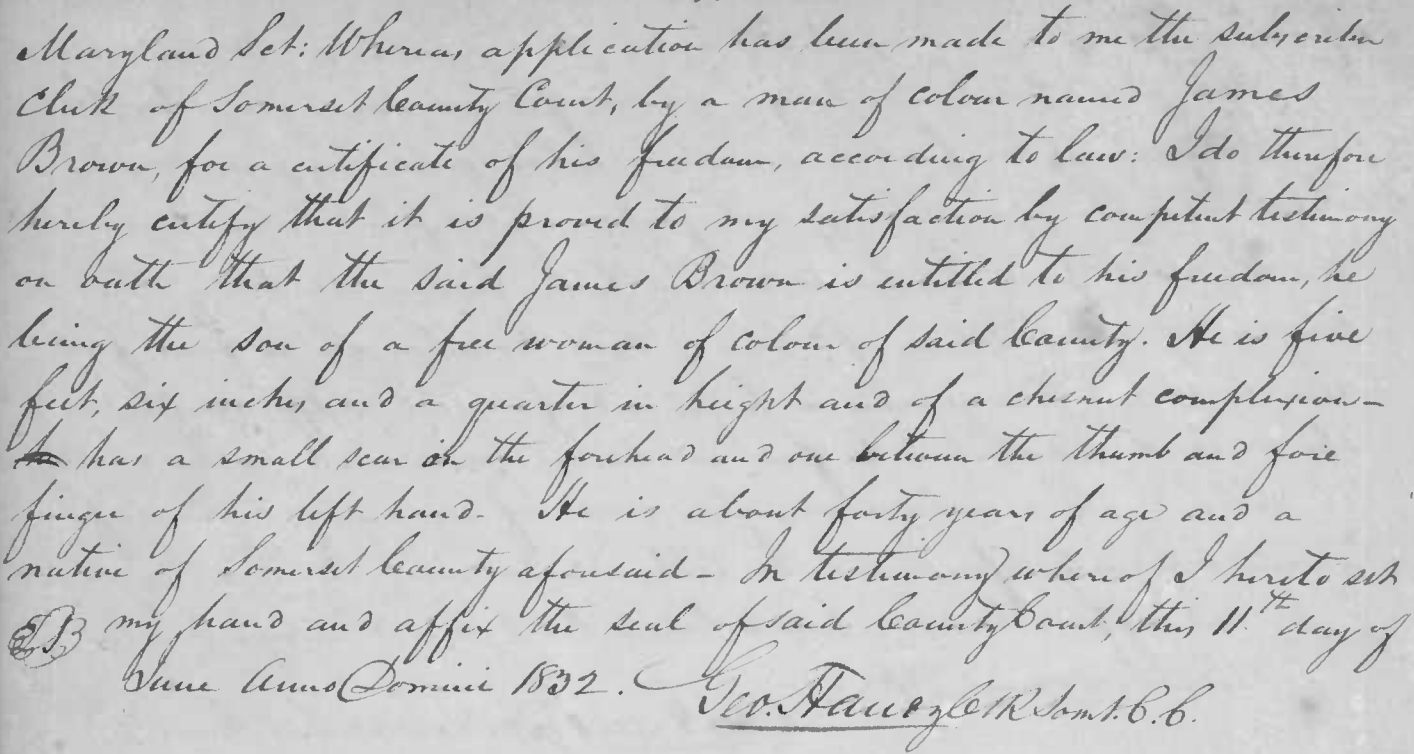 Maryland Sct: Whereas, application has been made to me the subscriber
Clerk of Somerset County Court, by a man of colour named James
Brown, for a certificate of his freedom, according to law: I do therefore
hereby certify that it is proved to my satisfaction by competent testimony
on oath that the said James Brown is entitled to his freedom, he
being the son of a free woman of colour of said County. He is five
feet, six inches, and a quarter in height and of a chesnut complexion—
has a small scar on the forehead and one between the thumb and fore
finger of his left hand. He is about forty years of age and a
native of Somerset County aforesaid— In testimony whereof I hereto set
my hand and affix the seal of said County Court, this 11th day of
June Anno Domini 1832.
Geo. Handy Clk Somt. C. C.